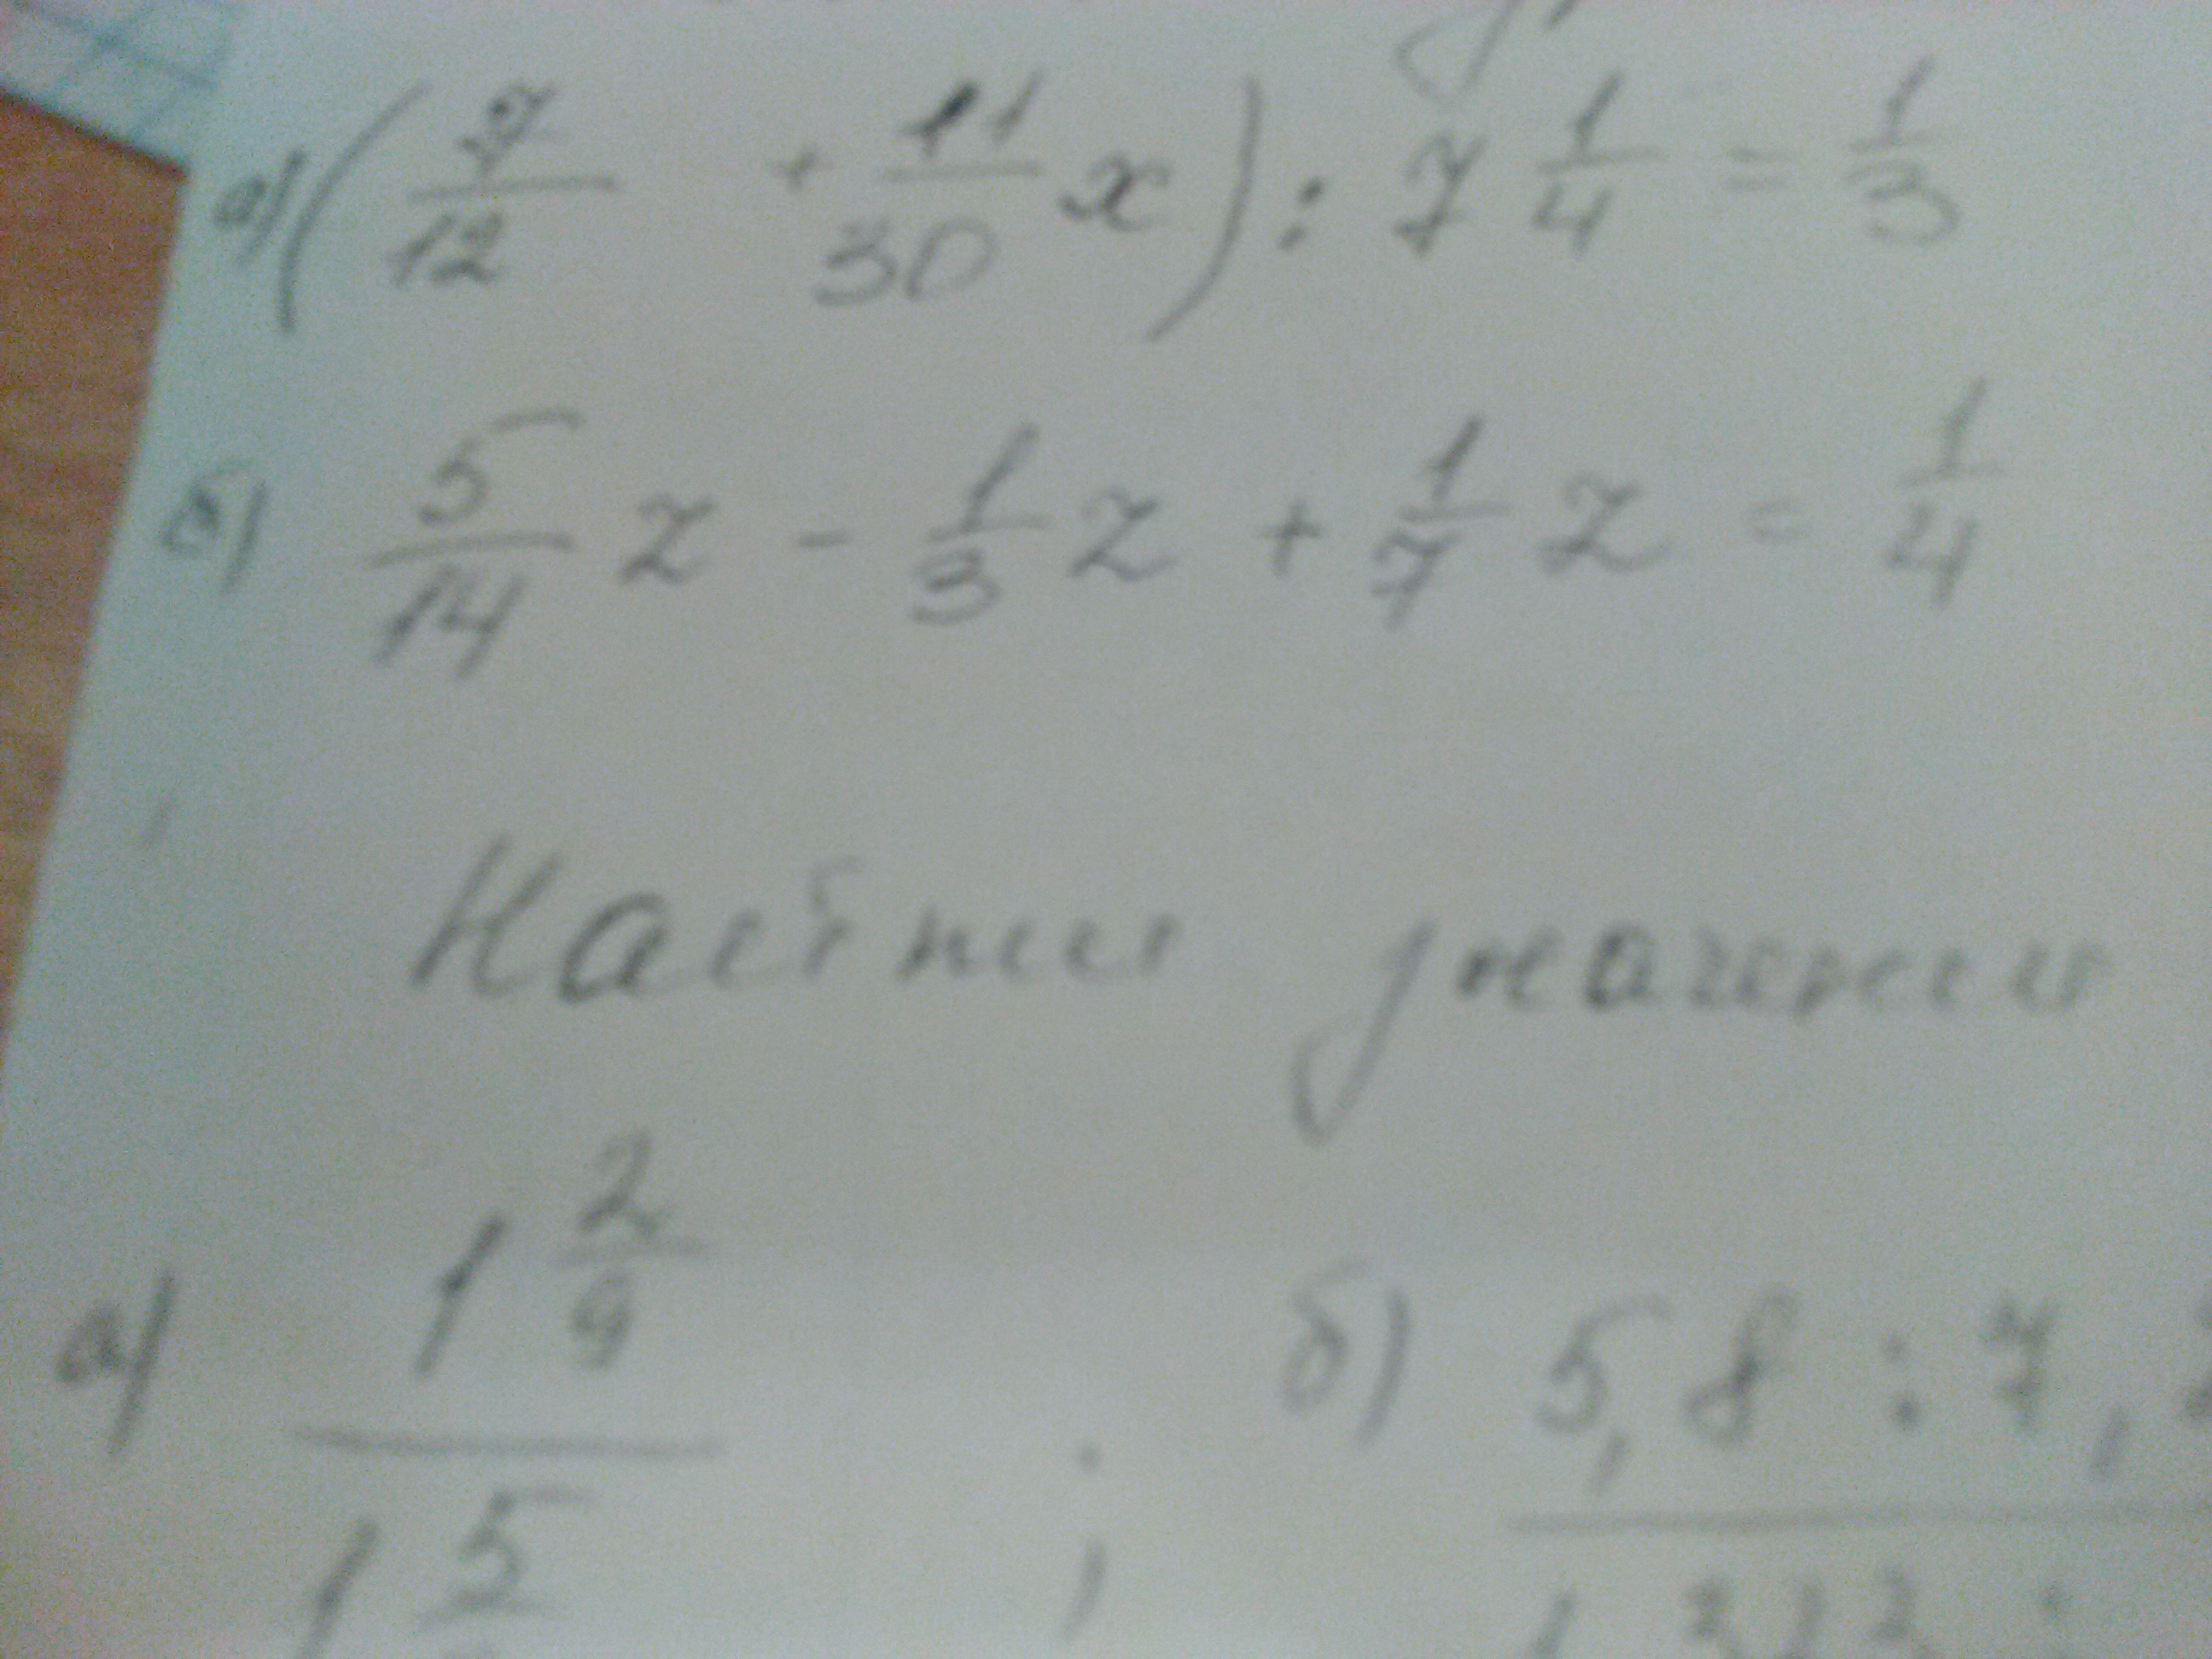 а) ( 7/12 + 11/30 x ) : 7 1/4 = 1/3
б) 5/14 z - 1/3 z + 1/7 z = 1/4
Найти значени
а) 1 2/9 ; б) 5,8 : 7,
1 5